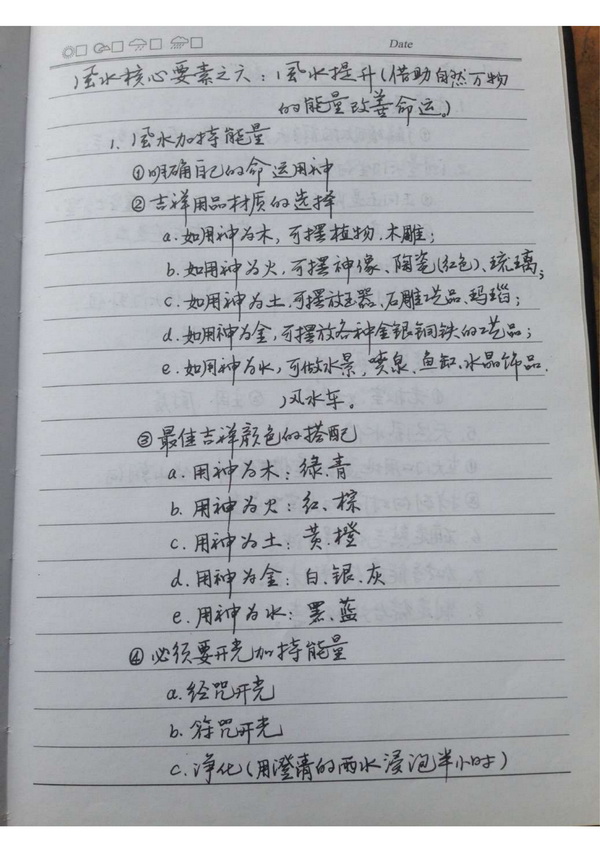 Date
风水核心要素之六：风水提升(借助自然万物
的能量改善命运。)
1. 风水加持能量
①明确自己的命运用神
②吉祥用品材质的选择
a.如用神为木，可摆植物.木雕；
b.如用神为火，可摆神像、陶瓷(红色)、琉璃；
c.如用神为土,可摆放玉器、石雕工艺品、玛瑙；
d.如用神为金，可摆放各种金银铜铁的工艺品；
e.如用神为水，可做水景，喷泉、鱼缸、水晶饰品.
风水车。
③最佳吉祥颜色的搭配
a.用神为木：绿.青
b.用神为火：红、棕
c.用神为土：黄.橙
d.用神为金：白、银、灰
e.用神为水：黑.蓝
④必须要开光加持能量
a.经咒开光
b.符咒开光
c.净化(用澄清的雨水浸泡半小时)